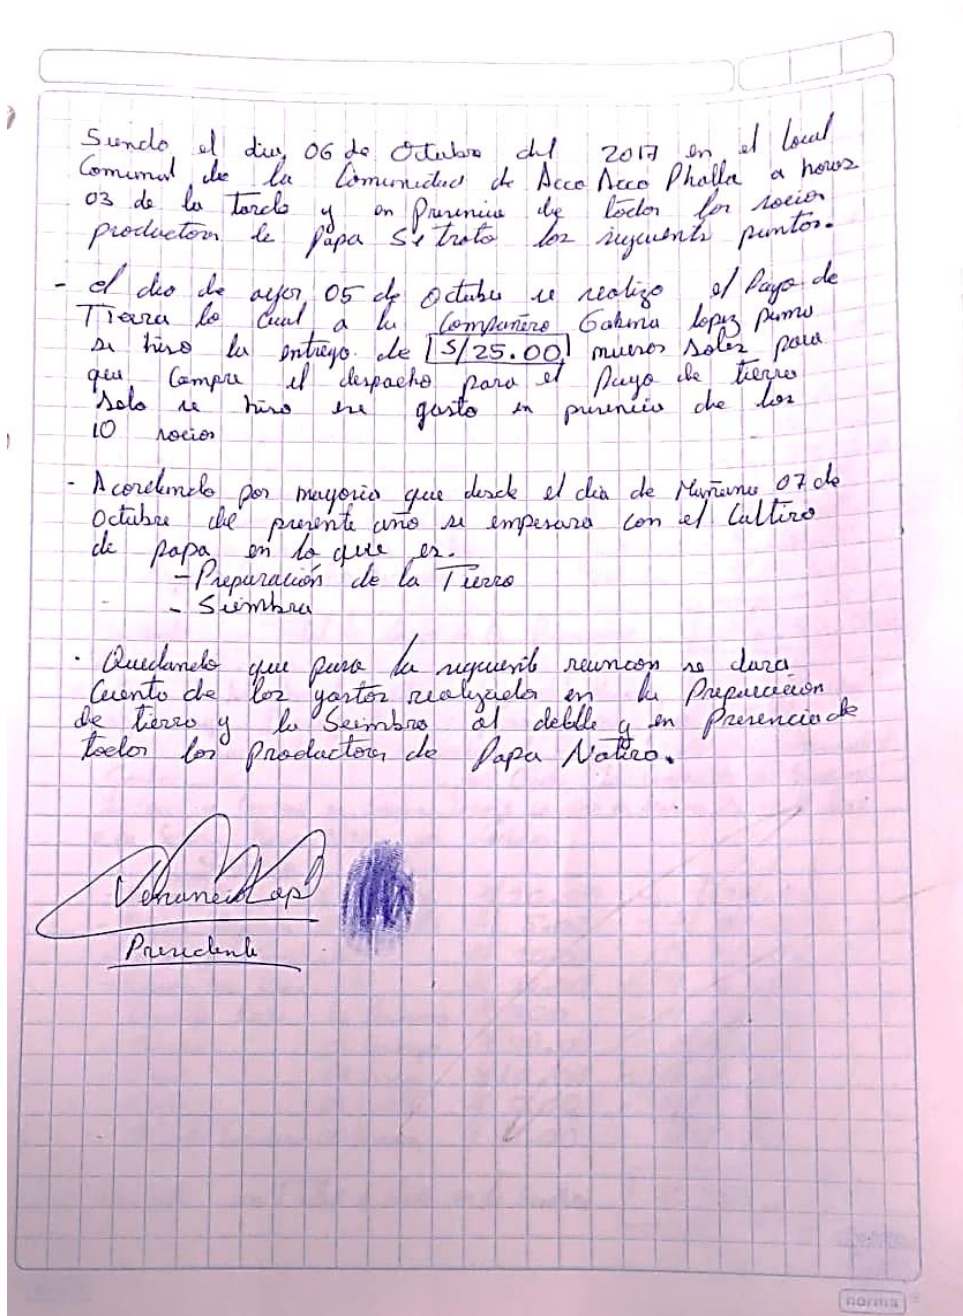 Siendo el dia 06 de Octubre del 2017 en el local
Comunal de la Comunidad de Acco Acco Phalla a horas
03 de la tarde y en Presencia de todos los socios
productores de Papa se trato los siguients puntos.
- el dia de ayer 05 de Octubre se realizo el Pago de
Tierra lo cual a la Compañera Gabina lopez puma
se hiso la entrega de S/25.00 nuevos soles para
que Compre el despacho para el Pago de tierra
Solo se hiso ese gasto en presencia de los
10 socios
- Acordando por mayoria que desde el dia de Mañana 07 de
Octubre del presente año se empesara con el Cultivo
de papa en lo que es.
- Preparación de la Tierra
- Siembra
- Quedando que para la siguiente reunion se dara
Cuenta de los gastos realizados en la Preparacion
de tierra y la Seimbra al detalle y en Presencia de
todos los Productores de Papa Nativa.
Presidente
norma